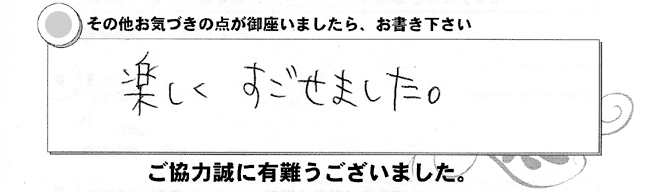 その他お気づきの点が御座いましたら、お書き下さい
楽しく すごせました。
ご協力誠に有難うございました。